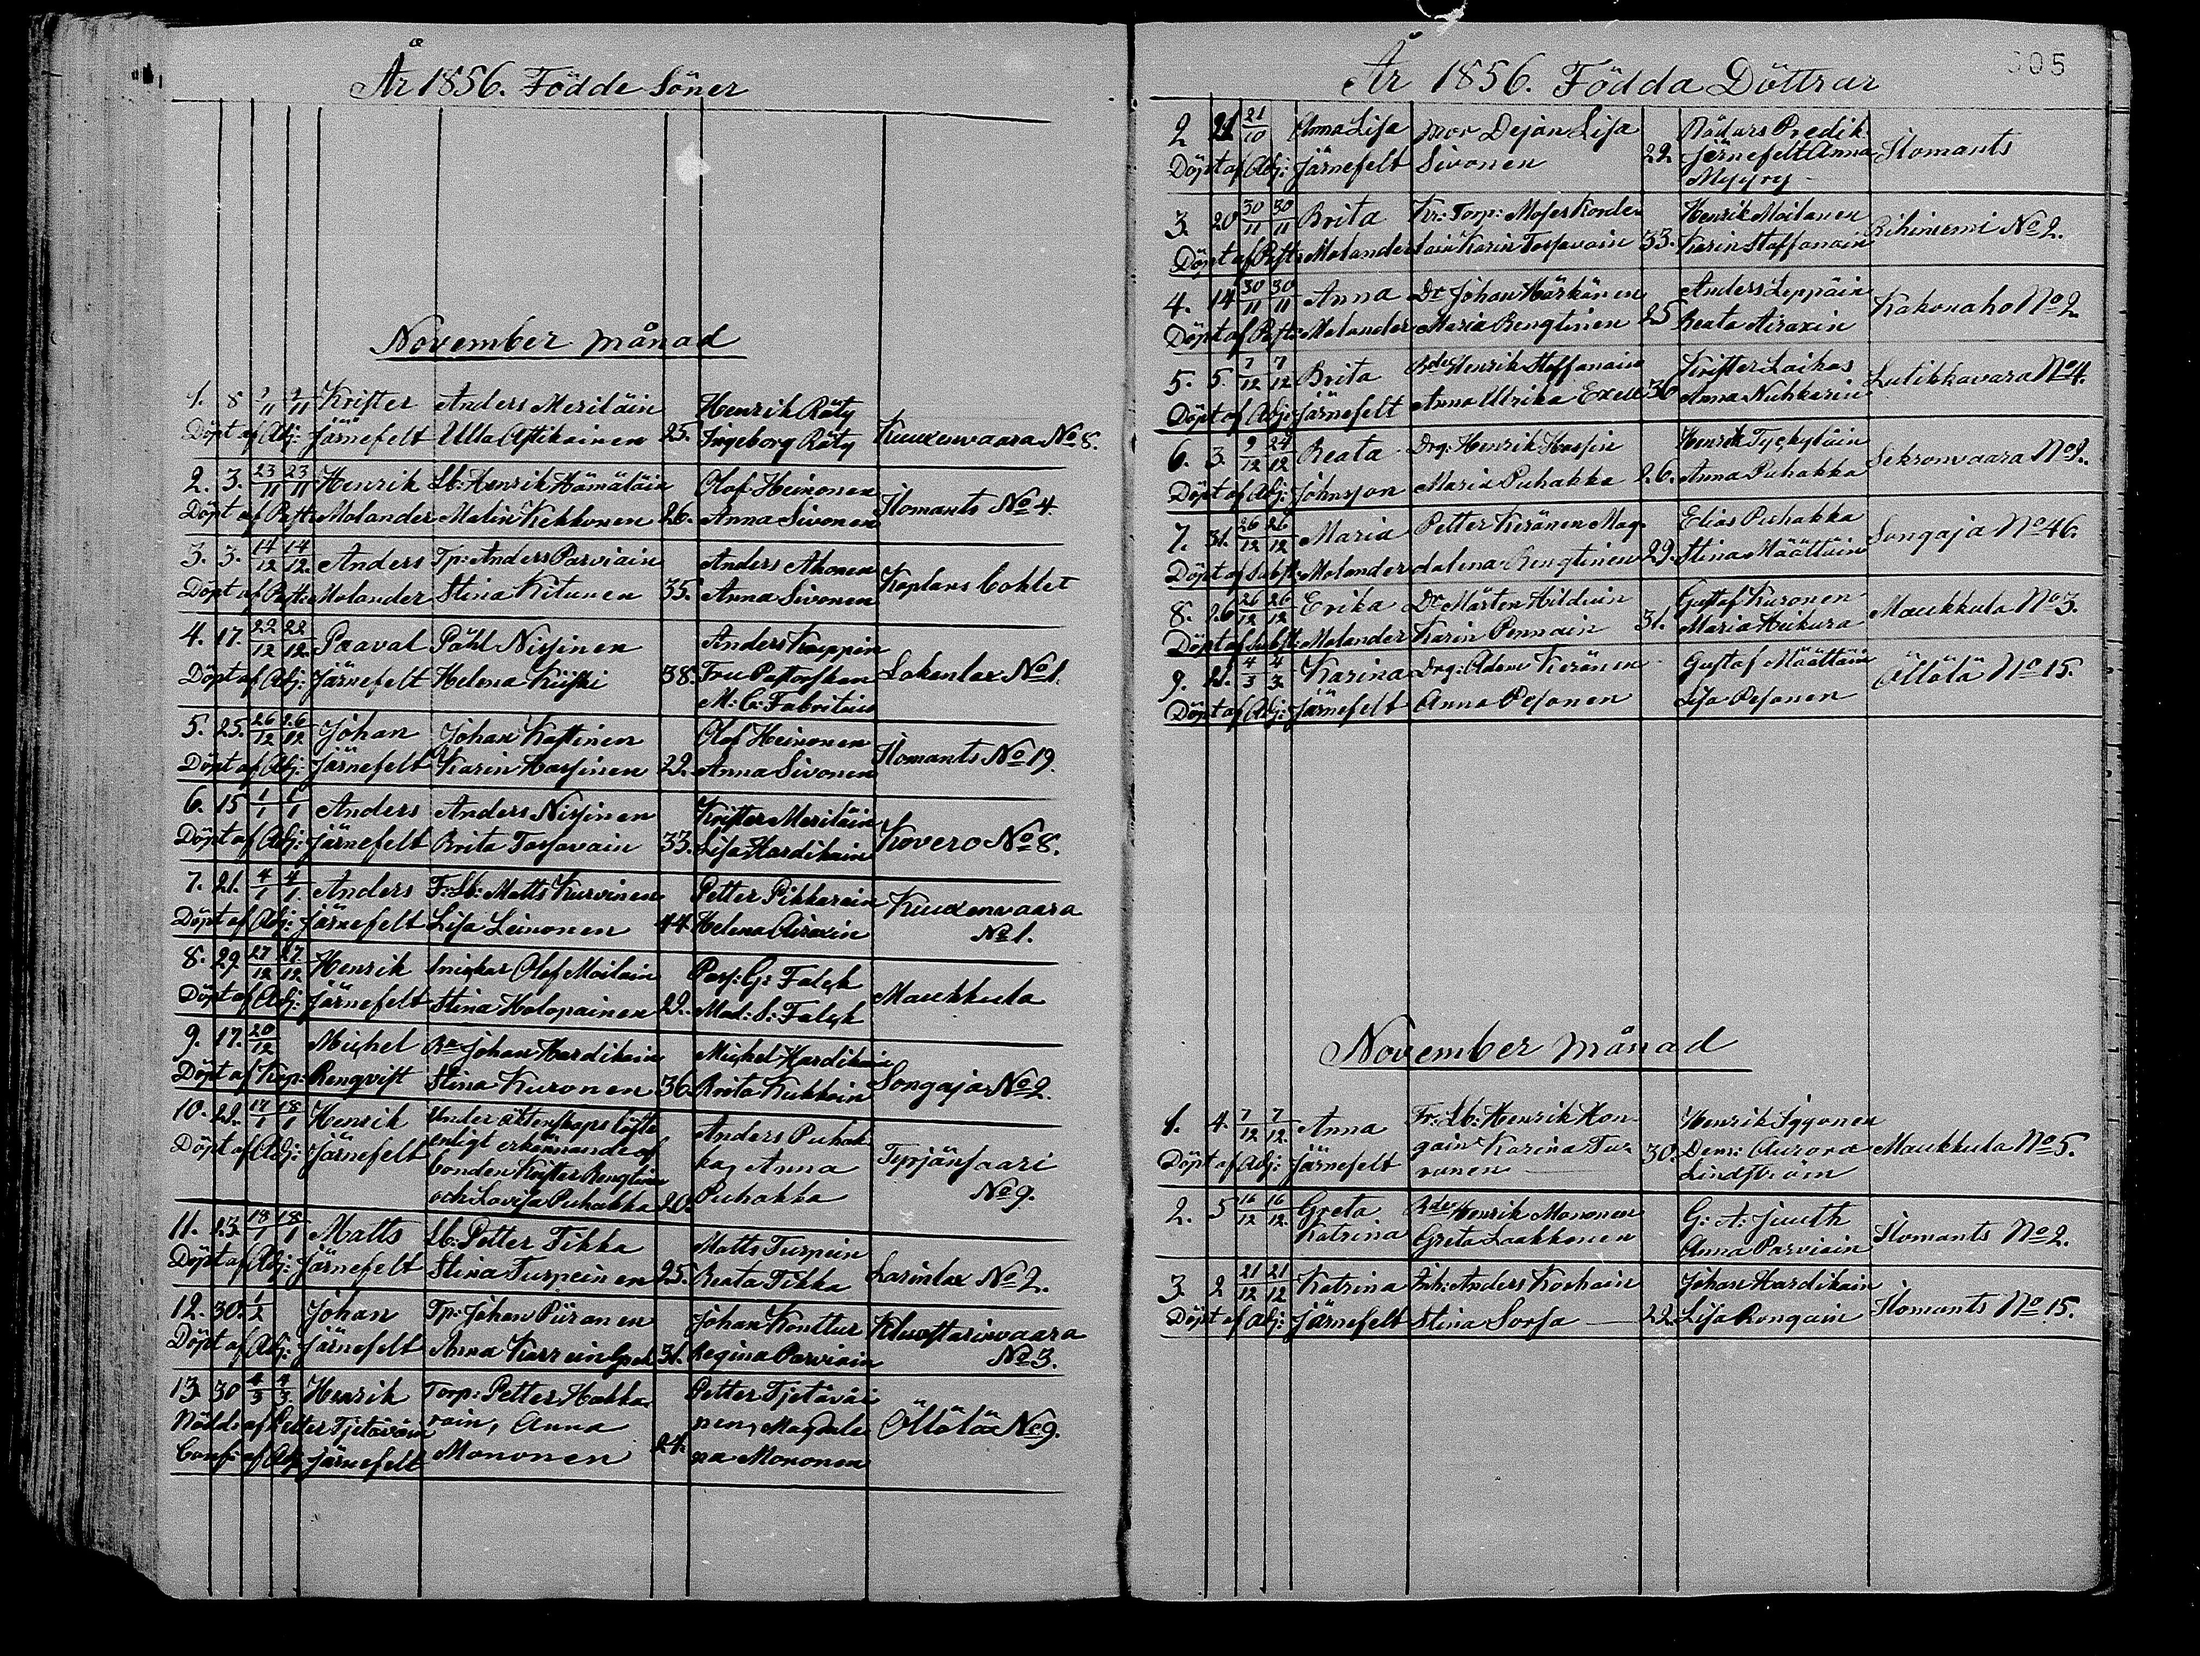 År 1856. Födde Söner
November månad
1. 8 2/11 2/11 Krister Anders Meriläin Henrik Räty
Döpt af Adj: Järnefelt Ulla Astikainen 25. Ingeborg Räty Kuuxenvaara No 8.
2. 3. 23/11 23/11 Henrik Lb: Henrik Hämäläin Olof Heinonen Ilomants No 4.
Döpt af Past: Molander Malin Kekkonen 26. Anna Sivonen
3. 3. 14/12 14/12. Anders Tp: Anders Parviain Anders Ahonen Kaplans Boklet
Döpt af Past: Molander Stina Kitunen 35. Anna Sivonen
4. 17. 22/12 22/12. Paaval Påhl Nissinen Anders Kauppin
Döpt af Adj: Järnefelt Helena Kiiski 38. Fru Pastorskan Lakanlax No 1.
M: C: Fabritius
5. 25. 26/12 26/12 Johan Johan Kastinen Olof Heinonen Ilomants No 19.
Döpt af Adj: Järnefelt Karin Hassinen 22. Anna Sivonen
6. 15 1/1 1/1 Anders Anders Nissinen Krister Meriläin Kovero No 8.
Döpt af Adj: Järnefelt Brita Tossavain 33. Lisa Hardikain
7. 21. 4/1 4/1. Anders F: Lb: Matts Kurvinen Petter Pikkarain Kuuxenvaara
Döpt af Adj: Järnefelt Lisa Leinonen 44. Helena Airaxin No 1.
8. 29 27/12 27/12 Henrik Snickar Olof Moilain Pass: G: Falck Maukkula
Döpt af Adj: Järnefelt Stina Holopainen 22. Mad: S: Falck
9. 17. 20/12 Michel Bn Johan Hardikain Michel Hardikain
Döpt af Kap: Renqvist Stina Kuronen 36. Brita Kukkoin Songaja No 2.
10. 22. 17/1 18/1 Henrik Under äktenskaps löfte Anders Puhak-
Döpt af Adj: Järnefelt enligt erkännande af ka, Anna Tyrjänsaari
bonden Krister Rengtinen Puhakka No 9.
och Lovisa Puhakka 20.
11. 23. 18/1 18/1 Matts Lb: Petter Tikka Matts Turpein
Döpt af Adj: Järnefelt Stina Turpeinen 25. Beata Tikka Larinlax No 2.
12. 30. 1/2 Johan Tp: Johan Piironen Johan Konttur Kluustarinvaara
Döpt af Adj: Järnefelt Anna Karrein 31. Regina Parviain No 3.
13. 30 4/3 4/3 Henrik Torp: Petter Hakka- Petter Tjetävai
Nöddr af Petter Tjetäväin rain, Anna nen, Magdale Öllölä No 9.
Conf: af Adj: Järnefelt Mononen 24. na Mononen
År 1856. Födda Döttrar 305
2 21 21/10 Anna Lisa mor Dejan Lisa Rådurs Predik.
Döpt af Adj: Järnefelt Sivonen 22. Järnefelt Anna Ilomants
Myyry
3. 20 30/11 30/11 Brita Kr: Torp: Moses Konde- Henrik Moilanen Riihiniemi No 2.
Döpt af Past: Molander lain Karin Tossavain 33. Karin Staffanain
4. 14 30/11 30/11 Anna Dr Johan Härkönen Anders Leppäin Kakonaho No 2
Döpt af Past: Molander Maria Rengtinen 25 Beata Airaxin
5. 5. 7/12 7/12 Brita Bde Henrik Staffanain Krister Laikas Lulikkavara No 4.
Döpt af Adj: Järnefelt Anna Ulrika Exell 30 Anna Nuhkarin
6. 3. 9/12 24/12 Beata Drg: Henrik Hassin Henrik Tyckyläin Sekronvaara No 2.
Döpt af Adj: Johnsson Maria Puhakka 26. Anna Puhakka
7. 31. 26/12 26/12 Maria Petter Kiränen Mag- Elias Puhakka Songaja No 46.
Döpt af Subst: Molander dalena Rengtinen 29. Stina Määttäin
8. 26 26/12 26/12 Erika Dr Mårten Hilduin Gustaf Kuronen Maukkula No 3.
Döpt af Subst: Molander Karin Pennain 31. Maria Heikura
9. 21. 4/3 4/3. Karina Drg: Adam Kiränen Gustaf Määttäin Öllölä No 15.
Döpt af Adj: Järnefelt Anna Pesonen Lisa Pesonen
November månad
1. 4. 7/12 7/12. Anna Fr: Lb: Henrik Hon- Henrik Iggonen
Döpt af Adj: Järnefelt gain Karina Tur- 30. Dem: Aurora Maukkula No 5.
ranen Lindström
2. 5 16/12 16/12. Greta Bde Henrik Mononen G: A: Juuth Ilomants No 2.
Katrina Greta Laakkonen Anna Parviain
3. 2 21/12 21/12 Katrina Inh: Anders Korhain Johan Hardikain Ilomants No 15.
Döpt af Adj: Järnefelt Stina Sorsa 22. Lisa Rongain